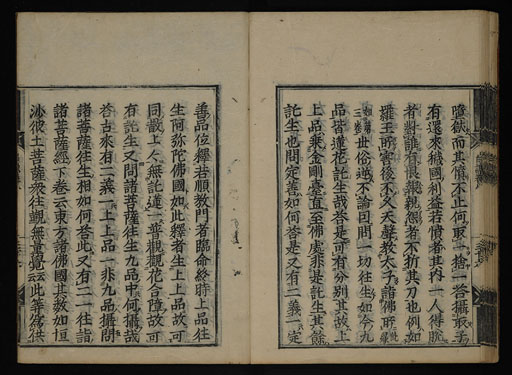 噎獄而其憤不止何取一捨一答攝取子
有還來穢國利益若憤者其内一人得脱
者對誰有恨報親怨者不折其刀也例如
羅王所害後不久天聲教太子諸佛所
世俗趣不論因問一切往生如今九
品皆蓮花託生哉答是可有分別其故上
上品乘金剛臺直至佛處非是託生其餘
託生也問定善如何答是又有二義一定
善品位釋若順教門者臨命終時上品往
生阿弥陀佛國如此釋者生上上品故可
同散上久無託蓮一普觀觀花合障故可
有託生又問諸菩薩往生九品中何攝哉
答古來有二義一上上品一非九品攝問
諸菩薩往生相如何答此又有二一往詣
諸菩薩經下卷云東方諸佛國其數如恒
沙彼土菩薩衆往覲無量覺云云此等爲供